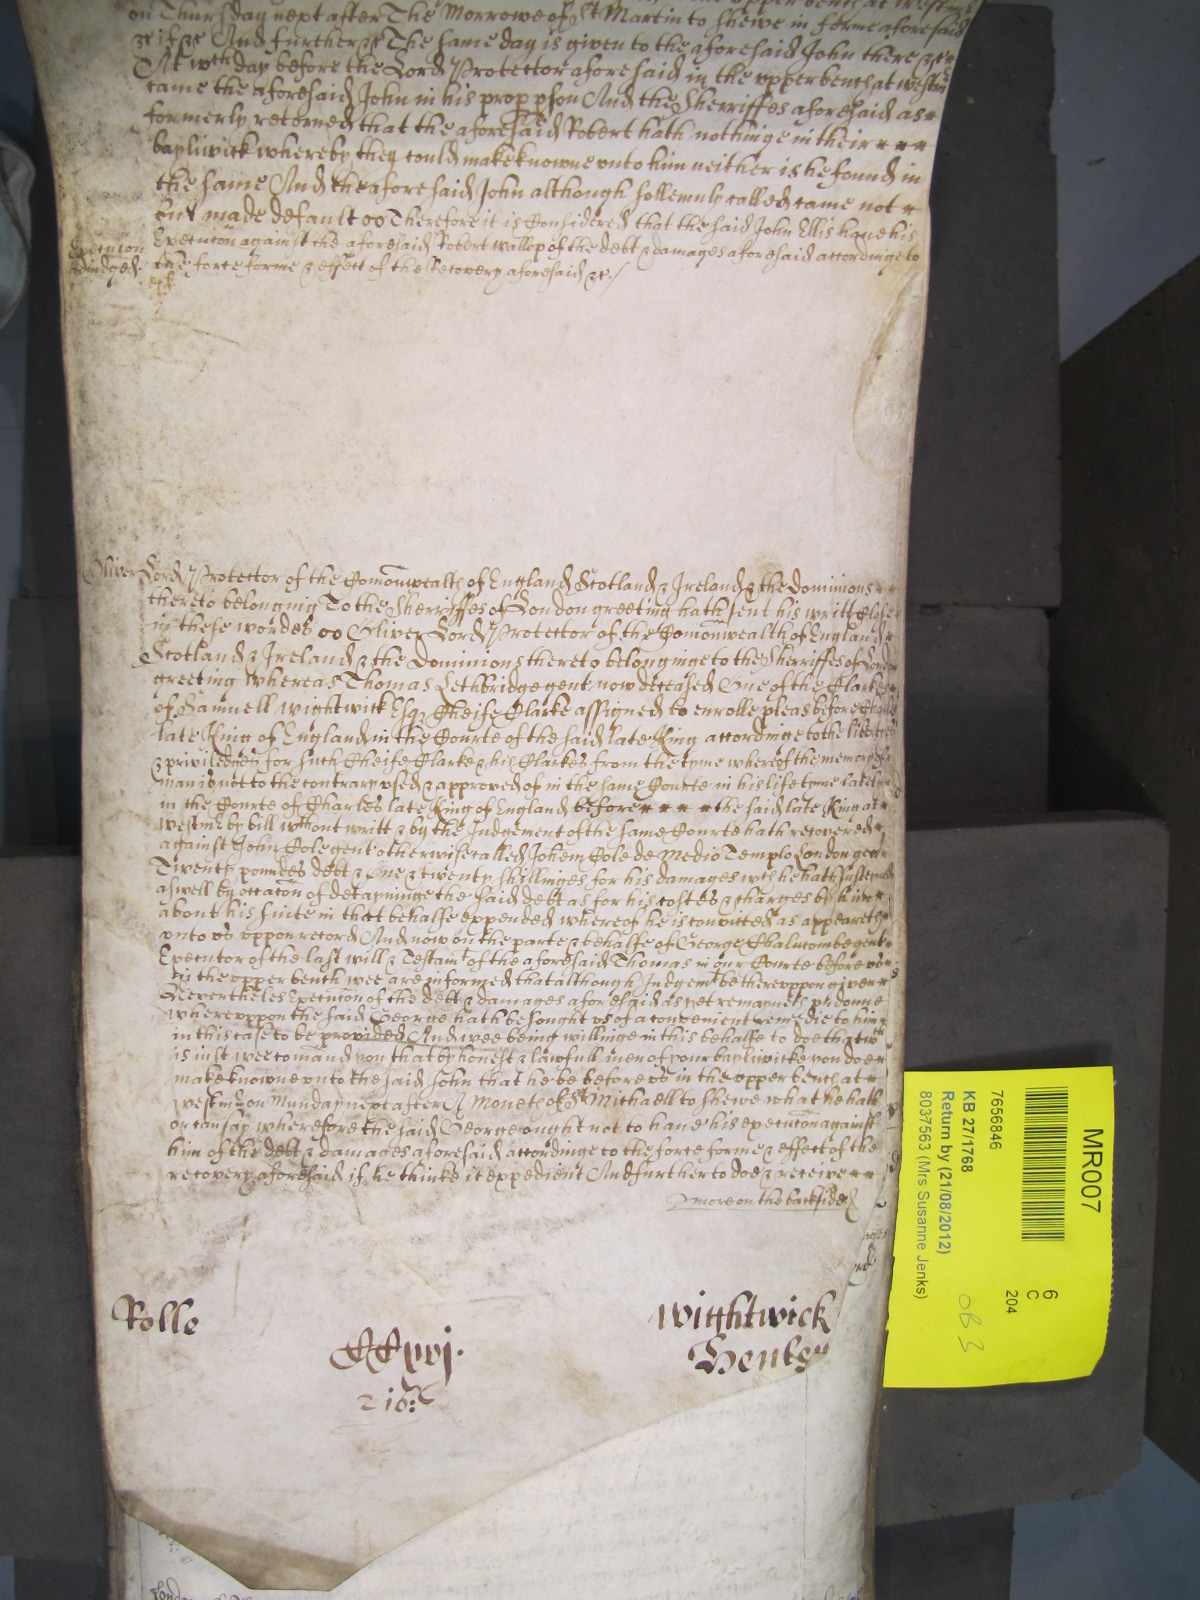 on Thursday next after The Morrowe of St Martin to shewe in forme aforesaid
&c if &c And further &c The same day is given to the aforesaid John there &c
At wch day before the Lord Protector aforesaid in the upper bench at westm
came the aforesaid John in his prop pson And the Sherriffes aforesaid as
formerly retorned that the aforesaid Robert hath nothinge in their
bayliwick whereby they could make knowne unto him neither is he found in
the same And the aforesaid John although sollemnly called came not
but made default Therefore it is Considered that the said John Ellis have his
Execucon against the aforesaid Robert wallop of the debt & damages aforesaid accordinge to
the force forme & effect of the Recovery aforesaid &c /
Execucon
adiudged
Oliver Lord Protector of the Comonwealth of England Scotland & Ireland & the Dominions
thereto belonging To the Sherriffes of London greeting hath sent his writt Close
in these wordes Oliver Lord Protector of the Comonwealth of England
Scotland & Ireland & the Dominions thereto belonginge to the Sherriffes of London
greeting whereas Thomas Lethbridge gent now deceased One of the Clarkes
of Samuell wightwick Esqr Cheife Clarke assigned to enrolle pleas before Charles
late King of England in the Courte of the said late King accordinge to the liberties
& priviledges for such Cheife Clarke & his Clarkes from the tyme whereof the memory of
man is not to the contrary used & approved of in the same Courte in his life tyme lately
in the Courte of Charles late King of England before the said late King at
westm by bill wthout writt & by the Judgement of the same Courte hath recovered
against John Cole gent otherwise called Johem Cole de Medio Templo London gent
Twenty poundes debt & One & twenty shillinges for his damages wch he hath susteyned
aswell by occacon of detayninge the said debt as for his costes & charges by him
about his suite in that behalfe expended whereof he is convicted as appeareth
unto us uppon record And now on the parte & behalfe of George Chalucombe gent
Executor of the last will & Testamt of the aforesaid Thomas in our Courte before us
in the upper bench wee are informed that although Judgemt be thereuppon given
Neverthelesse Execucon of the debt & damages aforesaid as yet remaynes undonne
whereuppon the said George hath besought us of a convenient remedie to him
in this case to be provided And wee being willinge in this behalfe to doe that wch
is iust wee comand you that by honest & lawfull men of your bayliwicke you doe
make knowne unto the said John that he be before us in the upper bench at
westm on Munday next after A Moneth of St Michaell to shewe what he hath
or can say wherefore the said George ought not to have his execucon against
him of the debt & damages aforesaid accordinge to the force forme & effect of the
recovery aforesaid if he thinke it expedient And further to doe & receive
more on the backside
Rolle
CCxvj.
216
wightwick
Henley
MR007
6
C
204
7656846
KB 27/1768
Return by (21/08/2012)
8037563 (Mrs Susanne Jenks)
OB 3